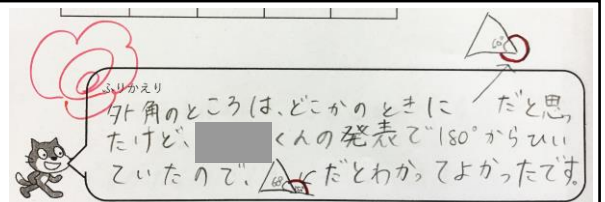 60°
ふりかえり
外角のところは、どこかのときに だと思っ
たけど、 くんの発表で180°からひい
ていたので、 だとわかってよかったです。
60